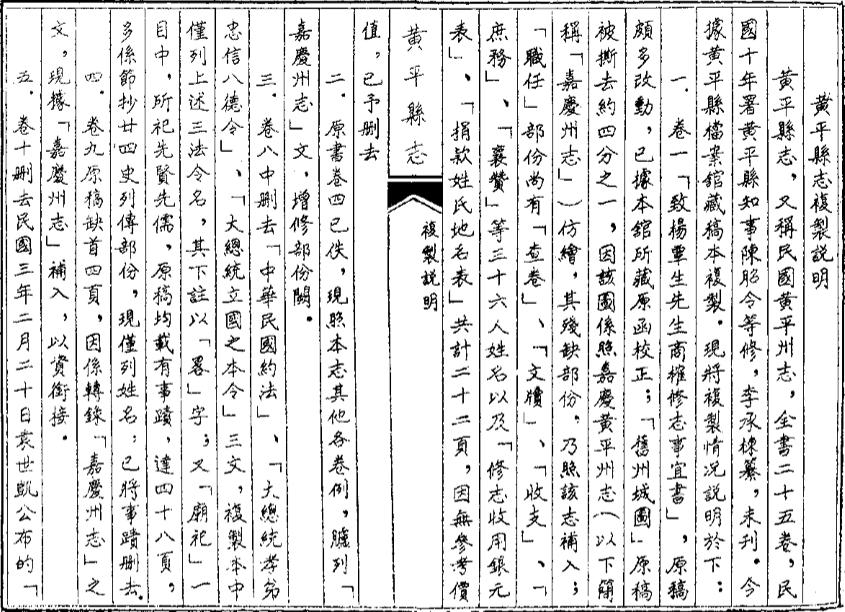 黄平縣志複製説明
黄平縣志，又稱民國黄平州志，全書二十五卷，民
國十年署黄平縣知事陳昭令等修，李承棟纂，未刊。今
據黄平縣檔案舘藏稿本複製。現將複製情况説明於下：
一．卷一「致楊覃生先生商榷修志事宜書」，原稿
頗多改動，已據本舘所藏原函校正；「舊州城圖」原稿
被撕去約四分之一，因該圖係照嘉慶黄平州志（以下簡
稱「嘉慶州志」）仿繪，其殘缺部份，乃照該志補入；
「職任」部份尚有「查卷」、「文牘」、「收支」、「
庶務」、「襄贊」等三十六人姓名以及「修志收用銀元
表」、「捐款姓氏地名表」共計二十二頁，因無參考價
黄平縣志
複製説明
值，已予删去
二．原書卷四已佚，現照本志其他各卷例，臚列「
嘉慶州志」文，增修部份闕。
三．卷八中删去「中華民國約法」、「大總統孝弟
忠信八德令」、「大總統立國之本令」三文，複製本中
僅列上述三法令名，其下註以「畧」字；又「廟祀」一
目中，所祀先賢先儒，原稿均載有事蹟，達四十八頁，
多係節抄廿四史列傳部份，現僅列姓名，已將事蹟删去。
四．卷九原稿缺首四頁，因係轉錄「嘉慶州志」之
文，現據「嘉慶州志」補入，以資銜接。
五．卷十删去民國三年二月二十日袁世凱公布的「